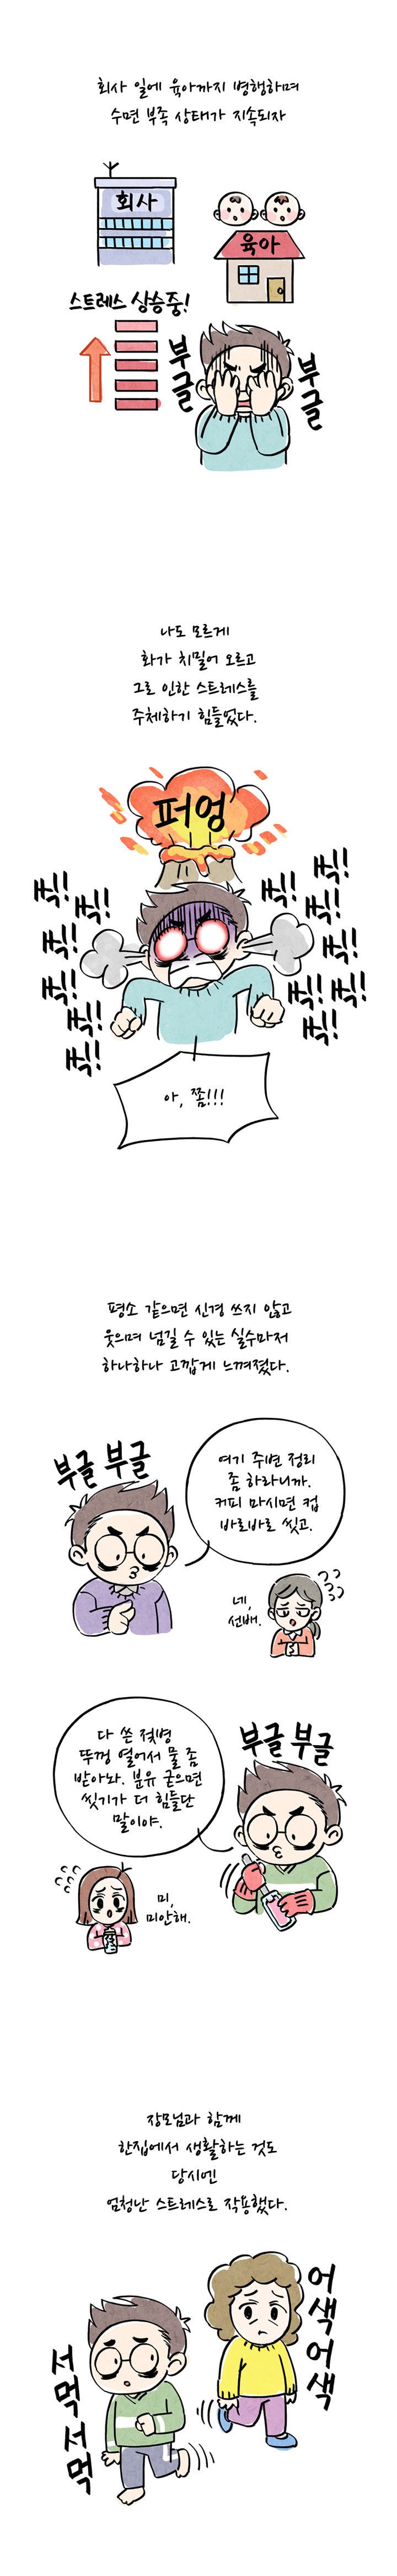 회사 일에 육아까지 병행하며
수면 부족 상태가 지속되자
회사
육아
스트레스 상승중!
부글
부글
나도 모르게
화가 치밀어 오르고
그로 인한 스트레스를
주체하기 힘들었다.
퍼엉
빽!
빽!
빽!
빽!
빽!
빽!
빽!
빽!
빽!
빽!
빽!
빽!
빽!
아, 쫌!!!
평소 같으면 신경 쓰지 않고
웃으며 넘길 수 있는 실수마저
하나하나 고깝게 느껴졌다.
부글 부글
여기 주변 정리
좀 하라니까.
커피 마시면 컵
바로바로 씻고.
네,
선배.
다 쓴 젖병
뚜껑 열어서 물 좀
받아놔. 분유 굳으면
씻기가 더 힘들단
말이야.
부글 부글
미,
미안해.
장모님과 함께
한집에서 생활하는 것도
당시엔
엄청난 스트레스로 작용했다.
어색어색
서먹서먹